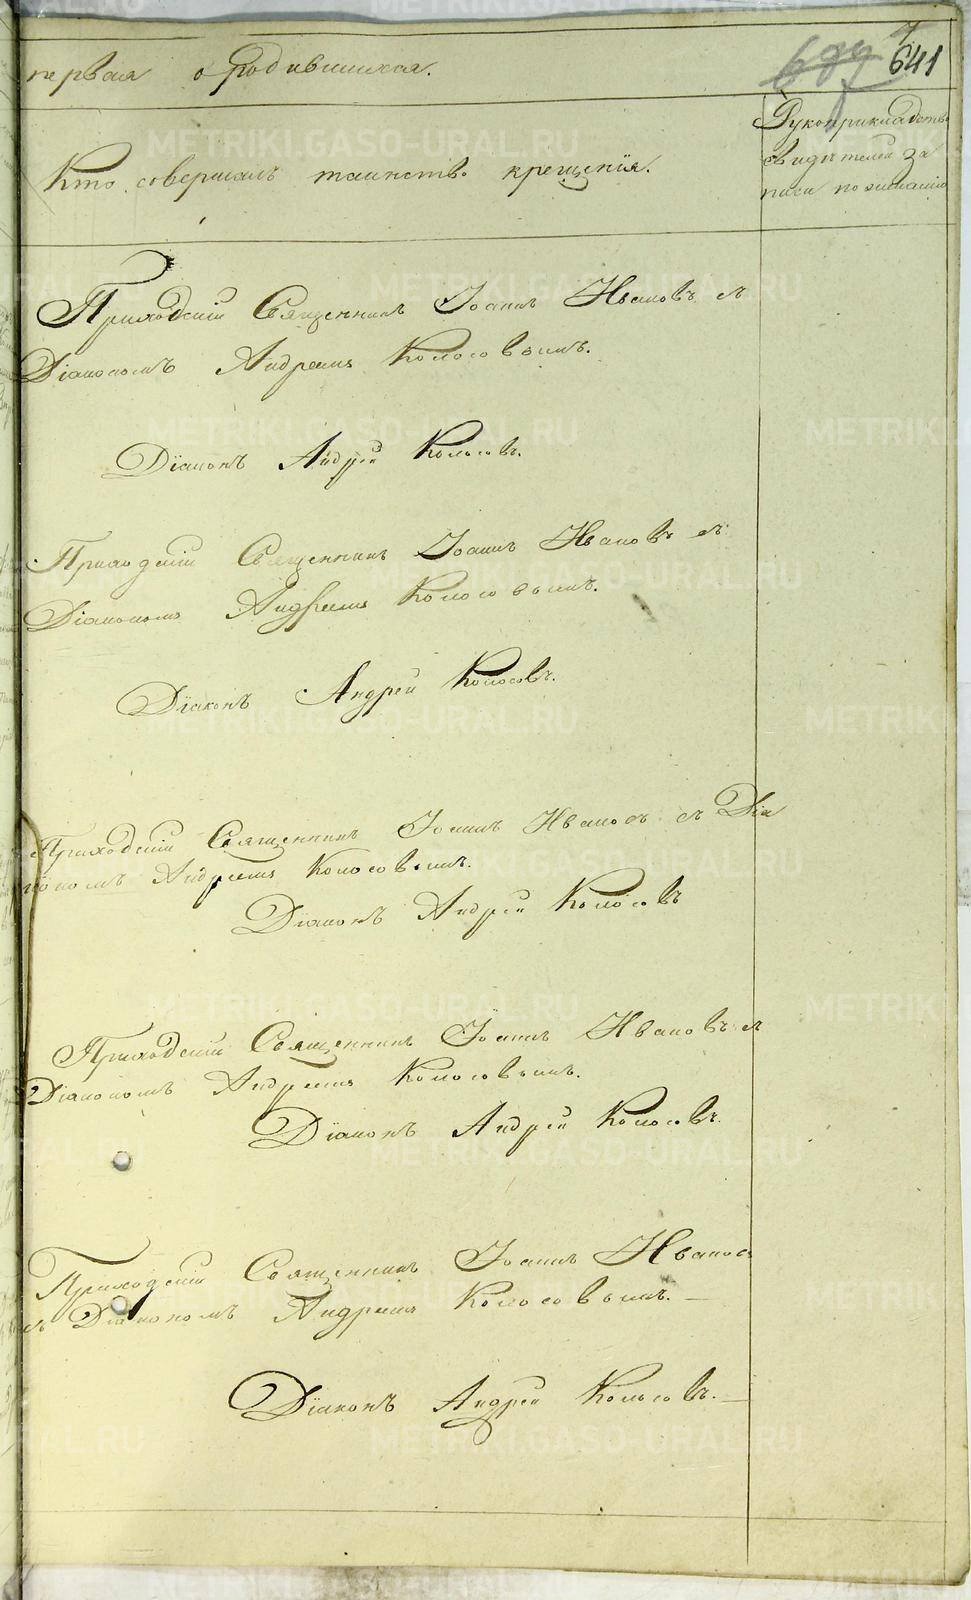 первая о родившихся.
7
641
Кто совершалъ таинство крещенія.
Рукоприкладство
свидѣтелей за
писи по желанію
Приходскій Священникъ Іоаннъ Ивановъ съ
Діакономъ Андреемъ Колосовымъ.
Діаконъ Андрей Колосовъ.
Приходскій Священникъ Іоаннъ Ивановъ съ
Діакономъ Андреемъ Колосовымъ.
Діаконъ Андрей Колосовъ.
Приходскій Священникъ Іоаннъ Ивановъ съ Діа
кономъ Андреемъ Колосовымъ.
Діаконъ Андрей Колосовъ
Приходскій Священникъ Іоаннъ Ивановъ съ
Діакономъ Андреемъ Колосовымъ.
Діаконъ Андрей Колосовъ.
Приходскій Священникъ Іоаннъ Ивановъ
съ Діакономъ Андреемъ Колосовымъ. —
Діаконъ Андрей Колосовъ. —
METRIKI.GASO-URAL.RU